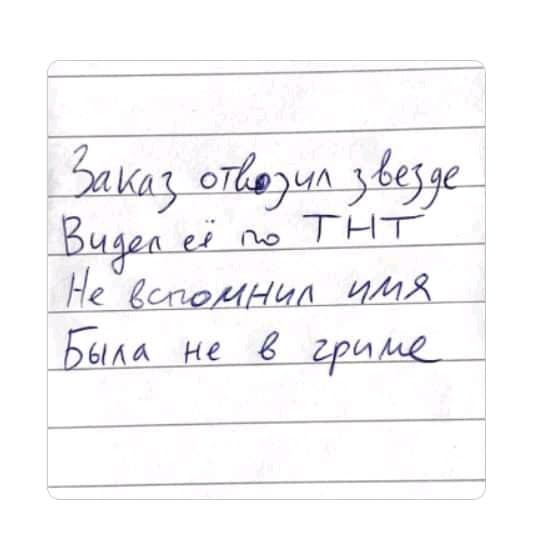 Заказ отвозил звезде
Видел её по ТНТ
Не вспомнил имя
Была не в гриме